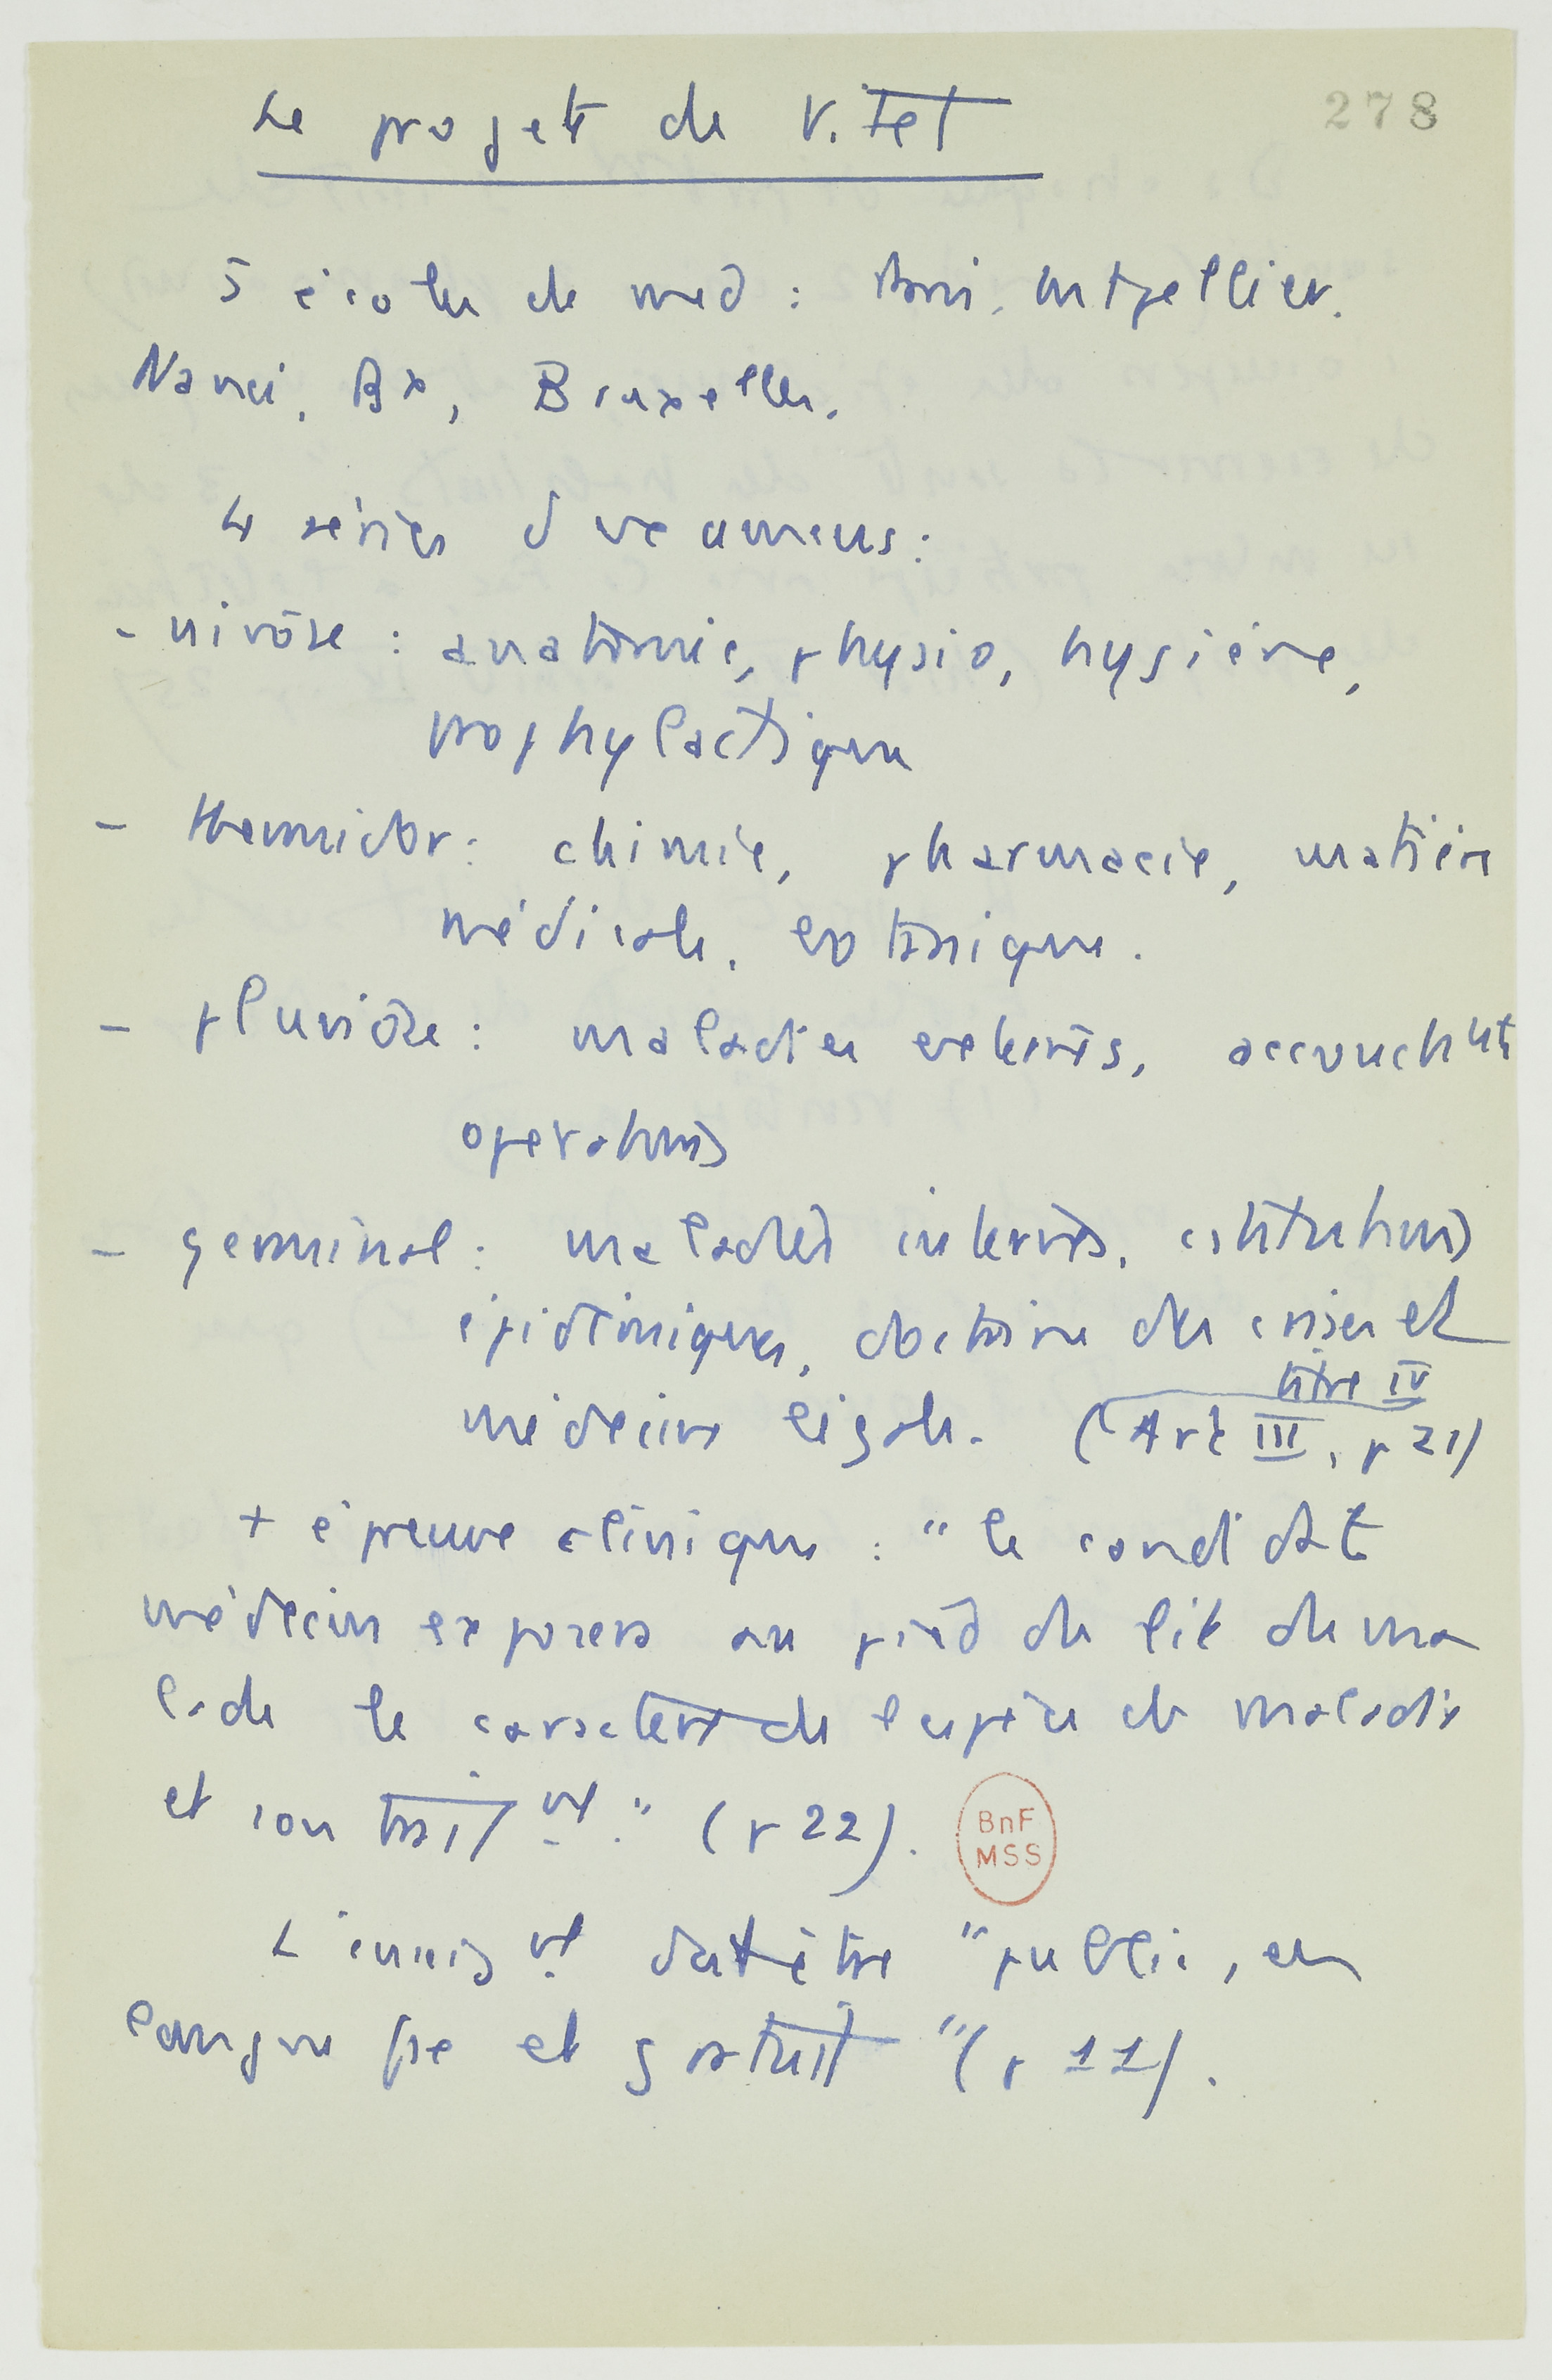 278
Le projet de Vitet
5 écoles de med : Paris, Mtpellier,
Nanci, Bx, Bruxelles.
4 séries d'examens :
- nivôse : anatomie, physio, hygiène,
prophylactique
- thermidor : chimie, pharmacie, matière
médicale, botanique.
- pluviôse : maladies externes, accouchmts
operations
- germinal : maladies internes, constitutions
épidémiques, doctrine des crises et
médecine légale. (Art III, p 21)
titre IV
+ épreuve clinique : "le candidat
médecin exposera au pied du lit du ma
lade le caractère de l'espèce de maladie
et son traitmt." (p 22).
BnF
MSS
L'enseigt doit être "public, en
langue fse et gratuit" (p 11).